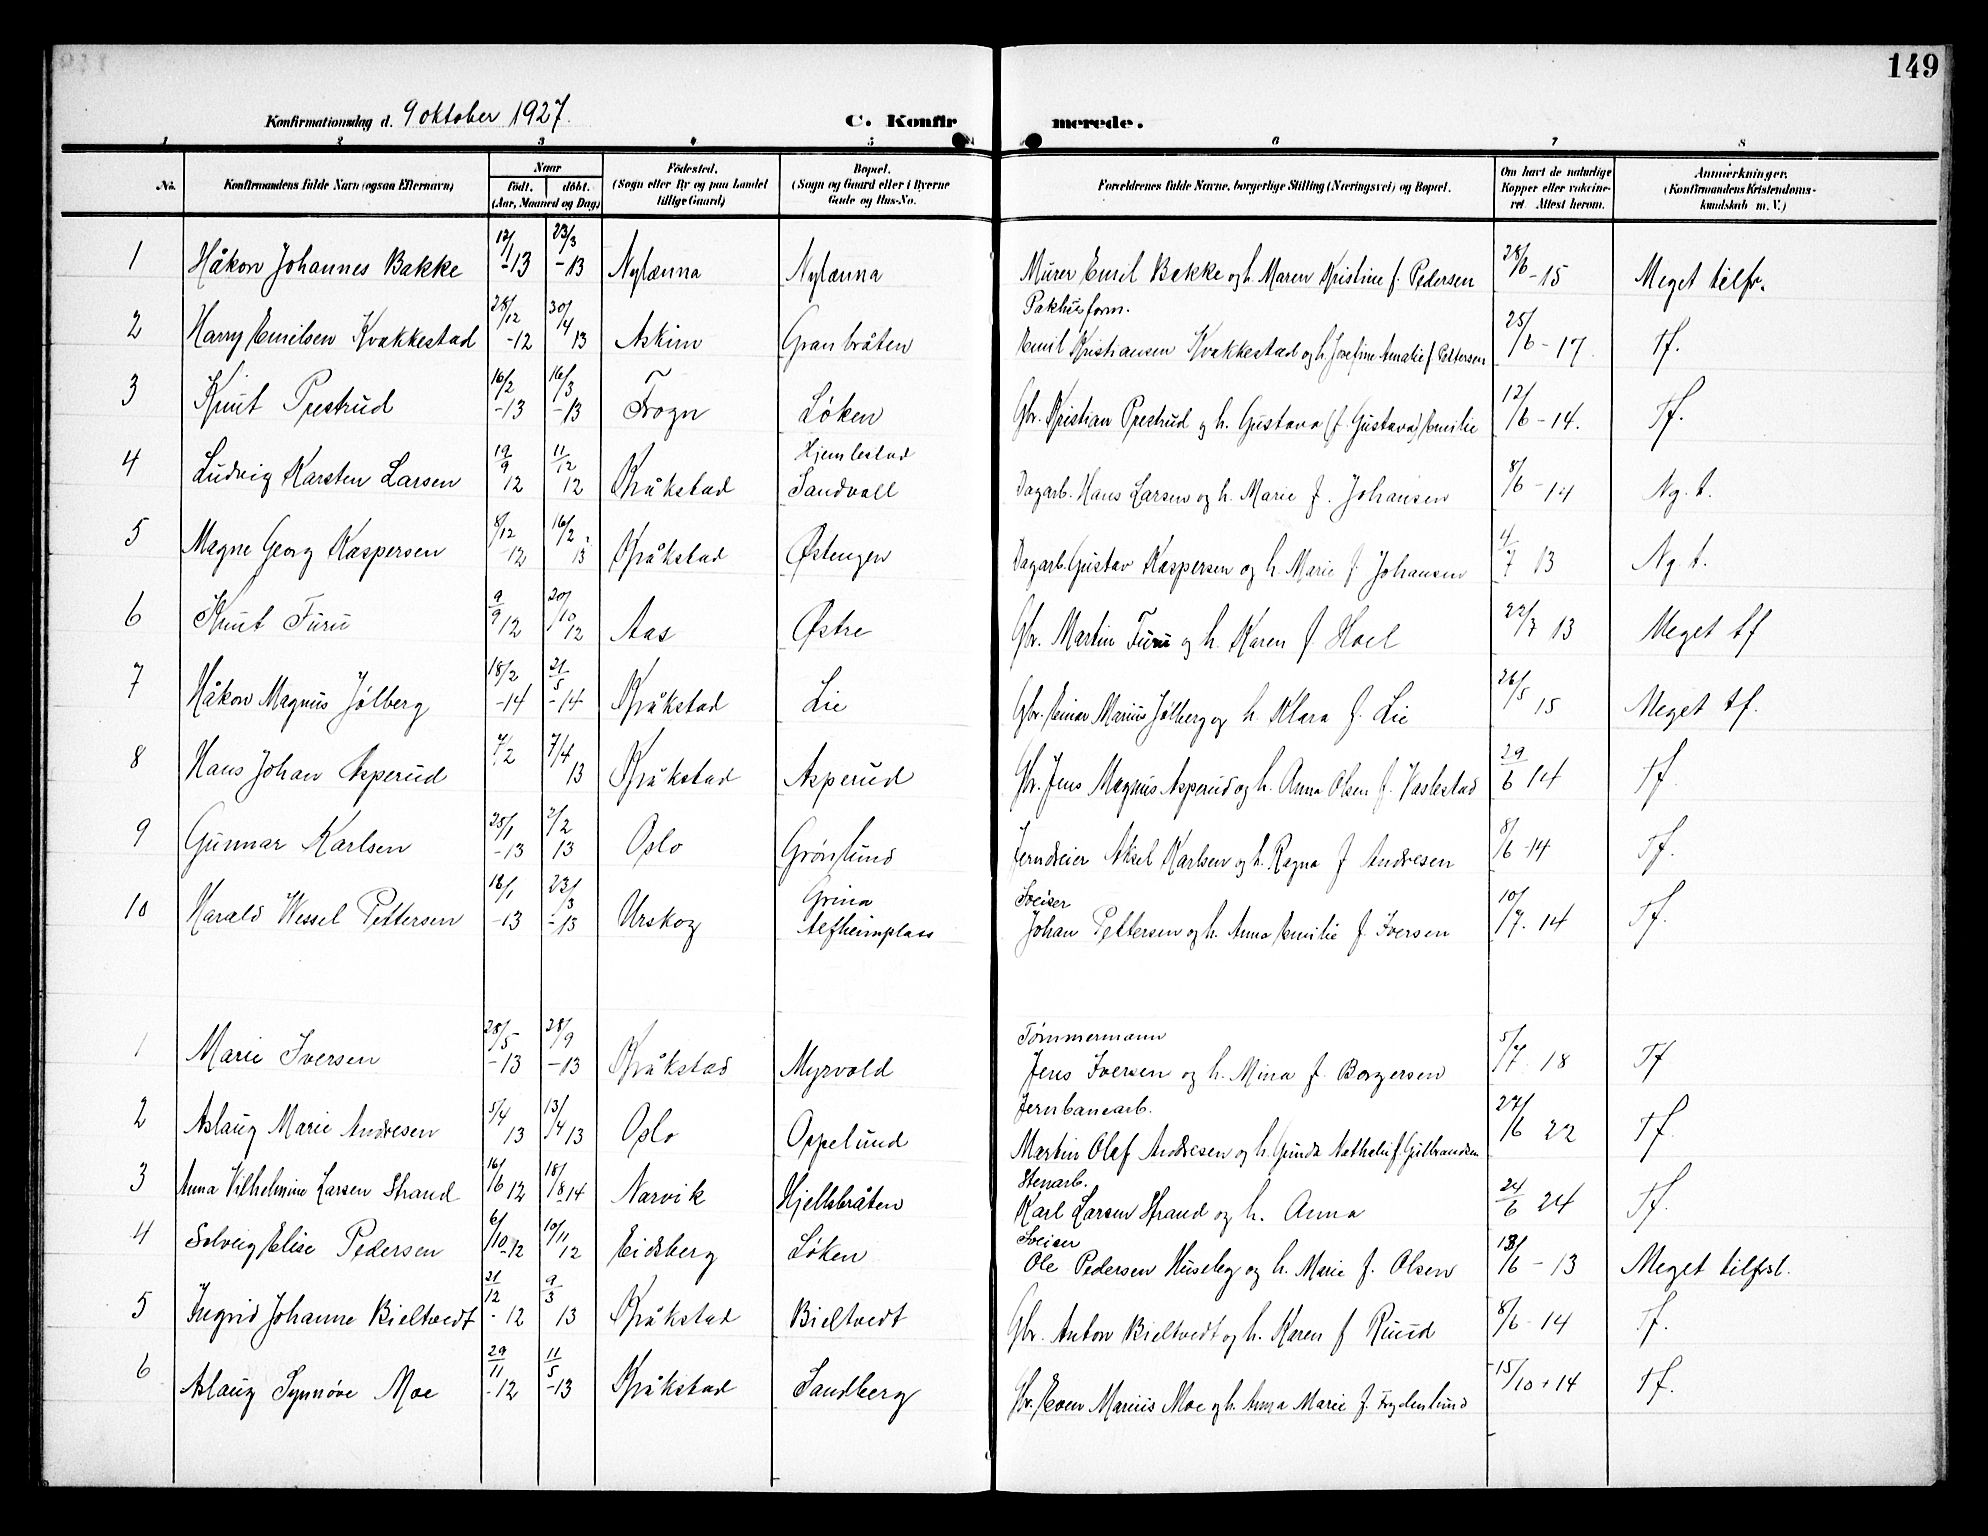 149
Konfirmationsdag d. 9 oktober 1927.
C. Konfirmerede.
1 2 3 4 5 6 7 8
No. | Konfirmandens fulde Navn (ogsaa Efternavn) | Naar født. døbt. (Aar, Maaned og Dag) | Fødested. (Sogn eller By og paa Landet tillige Gaard) | Bopæl. (Sogn og Gaard eller i Byerne Gade og Hus-No. | Forældrenes fulde Navne, borgerlige Stilling (Næringsvei) og Bopæl. | Om havt de naturlige Kopper eller vakcineret. Attest herom. | Anmærkninger. (Konfirmandens Kristendomskundskab m. V.)
1 Håkon Johannes Bakke 12/1 -13 23/3 -13 Nylænna Nylænna Murer Emil Bakke og h. Maren Kristine f. Pedersen 28/6 -15 Meget tilfr.
2 Harry Emilsen Kvakkestad 28/12 -12 30/4 13 Askim Granbråten Pakhusform. Emil Kristiansen Kvakkestad og h. Josefine Amalie f. Pettersen 25/6 -17 Tf.
3 Knut Prestrud 16/2 -13 16/3 -13 Frogn Løken Gbr. Kristian Prestrud og h. Gustava (f. Gustava) Emilie 12/6 -14. Tf.
4 Ludvig Karsten Larsen 19/9 12 11/12 12 Kråkstad Hjemlestad Sandvall Dagarb. Hans Larsen og h. Marie f. Johansen 8/6 -14 Ng. t.
5 Magne Georg Kaspersen 8/12 -12 16/2 13 Kråkstad Østengen Dagarb. Gustav Kaspersen og h. Marie f. Johansen 4/7 13 Ng. t.
6 Knut Furu 9/9 12 20/10 12 Aas Østre Gbr. Martin Furu og h. Karen f Hoel 22/7 13 Meget tf
7 Håkon Magnus Jølberg 18/2 -14 21/5 -14 Kråkstad Lie Gbr. Einar Marius Jølberg og h. Klara f. Lie 26/5 15 Meget tf.
8 Hans Johan Asperud 7/2 7/4 13 Kråkstad Asperud Gbr. Jens Magnus Asperud og h. Anna Olsen f. Vaslestad 29/6 14 Tf
9 Gunnar Karlsen 25/1 -13 2/2 13 Oslo Grønlund Jerndreier Aksel Karlsen og h. Ragna f Andresen 8/6 -14 Tf.
10 Harald Wessel Pettersen 16/1 -13 23/3 -13 Urskog Grina Alfheimplass Sveiser Johan Pettersen og h. Anna Emilie f. Iversen 10/7. 14 Tf.
1 Marie Iversen 28/5 -13 28/9 -13 Kråkstad Myrvold Tømmermann Jens Iversen og h. Mina f. Borgersen 5/7 18 Tf
2 Aslaug Marie Andresen 5/4 13 13/4 13 Oslo Oppelund Jernbanearb. Martin Olaf Andresen og h. Gunda Nathalie f. Gulbrandsen 27/6 22 Tf.
3 Anna Vilhelmine Larsen Strand 16/6 12 18/8 14 Narvik Hjellsbråten Stenarb. Karl Larsen Strand og h. Anna 24/6 24 Tf.
4 Solveig Elise Pedersen 6/10 -12 10/11 12 Eidsberg Løken Sveiser Ole Pedersen Huseby og h. Marie f. Olsen 18/6 -13 Meget tilfrst.
5 Ingrid Johanne Bieltvedt 21/12 -12 9/3 13 Kråkstad Bieltvedt Gbr. Anton Bieltvedt og h. Karen f Ruud 8/6 -14 Tf.
6 Aslaug Synnøve Moe 29/11 -12 11/5 -13 Kråkstad Sandberg Gbr. Even Marius Moe og h. Anna Marie f. Frydenlund 15/10 + 14 Tf.